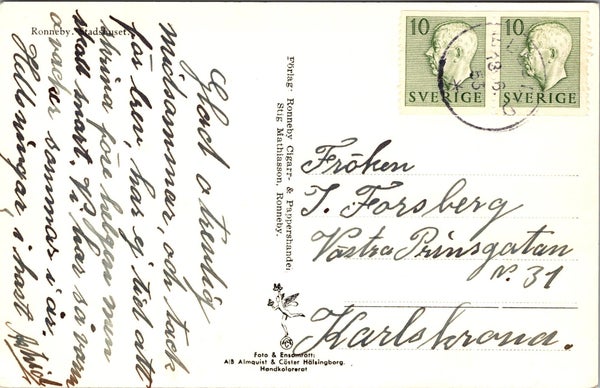 Ronneby. Stadshuset.
Glad o trevlig
midsommar, och tack
för brev, har ej tid att
skriva före helgen men
skall snart. Vi har så varm
o vacker sommar i år.
Hälsningar, i hast
Förlag: Ronneby Cigarr- & Pappershandel
Stig Mathiasson, Ronneby.
10 10
SVERIGE SVERIGE
Fröken
I. Forsberg
Västra Prinsgatan
N. 31
Karlskrona.
Foto & Ensamrätt:
A/B Almquist & Cöster Hälsingborg.
Handkolorerat